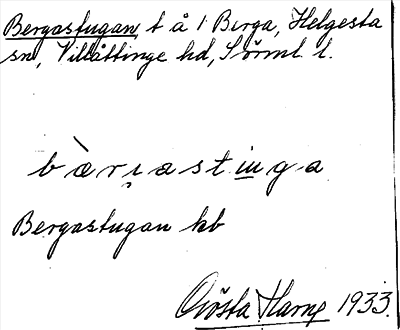 Bergastugan, t å 1 Berga, Helgesta
sn, Villåttinge hd, Sörml. l.
bæ̀rı̣astuga
Bergastugan kb
Gösta Harne 1933.